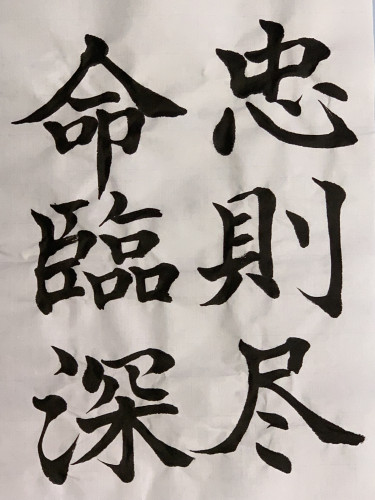 忠則尽
命臨深